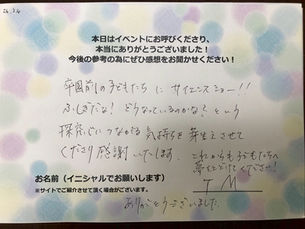 24.3.4
本日はイベントにお呼びくださり、
本当にありがとうございました!
今後の参考の為にぜひ感想をお聞かせください!
卒園前の子どもたちにサイエンスショー!!
ふしぎだな! どうなっているのかな? という
探究心につながる気持ちを芽生えさせて
くださり感謝いたします。これからも子どもたちへ
夢をとどけてください!
お名前(イニシャルでお願いします)
T M
※サイトでご紹介させて頂く場合がございます。
ありがとうございました